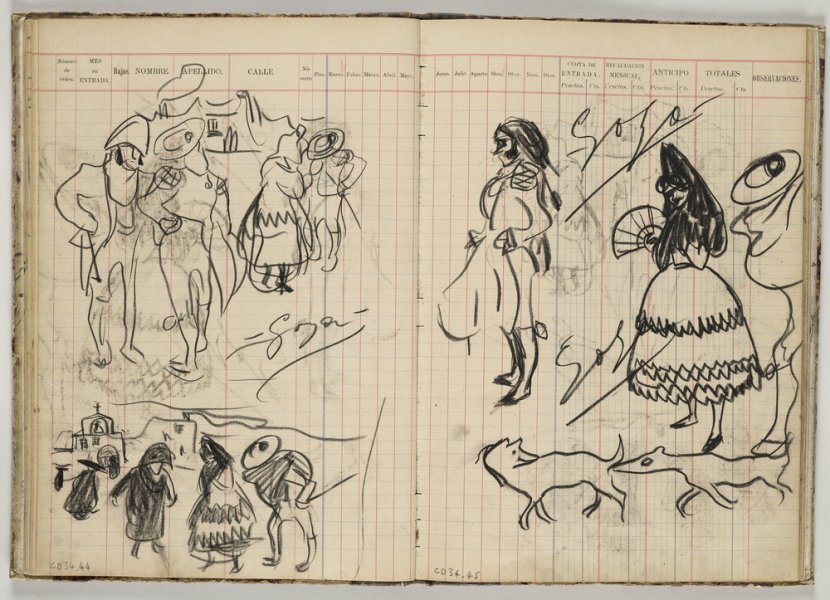 Número de orden.
MES DE ENTRADA.
Bajas.
NOMBRE.
APELLIDO.
CALLE.
Nú-mero.
Piso.
Enero.
Febro.
Marzo.
Abril.
Mayo.
-Goya-
CD34.44
Junio.
Julio.
Agosto
Sbre.
Otbre.
Nbre.
Dbre.
CUOTA DE ENTRADA.
Pesetas.
Cts.
RECAUDACION MENSUAL.
Pesetas.
Cts.
ANTICIPO
Pesetas.
Cts.
TOTALES
Pesetas.
Cts.
OBSERVACIONES.
Goya
Goy
CD34.45